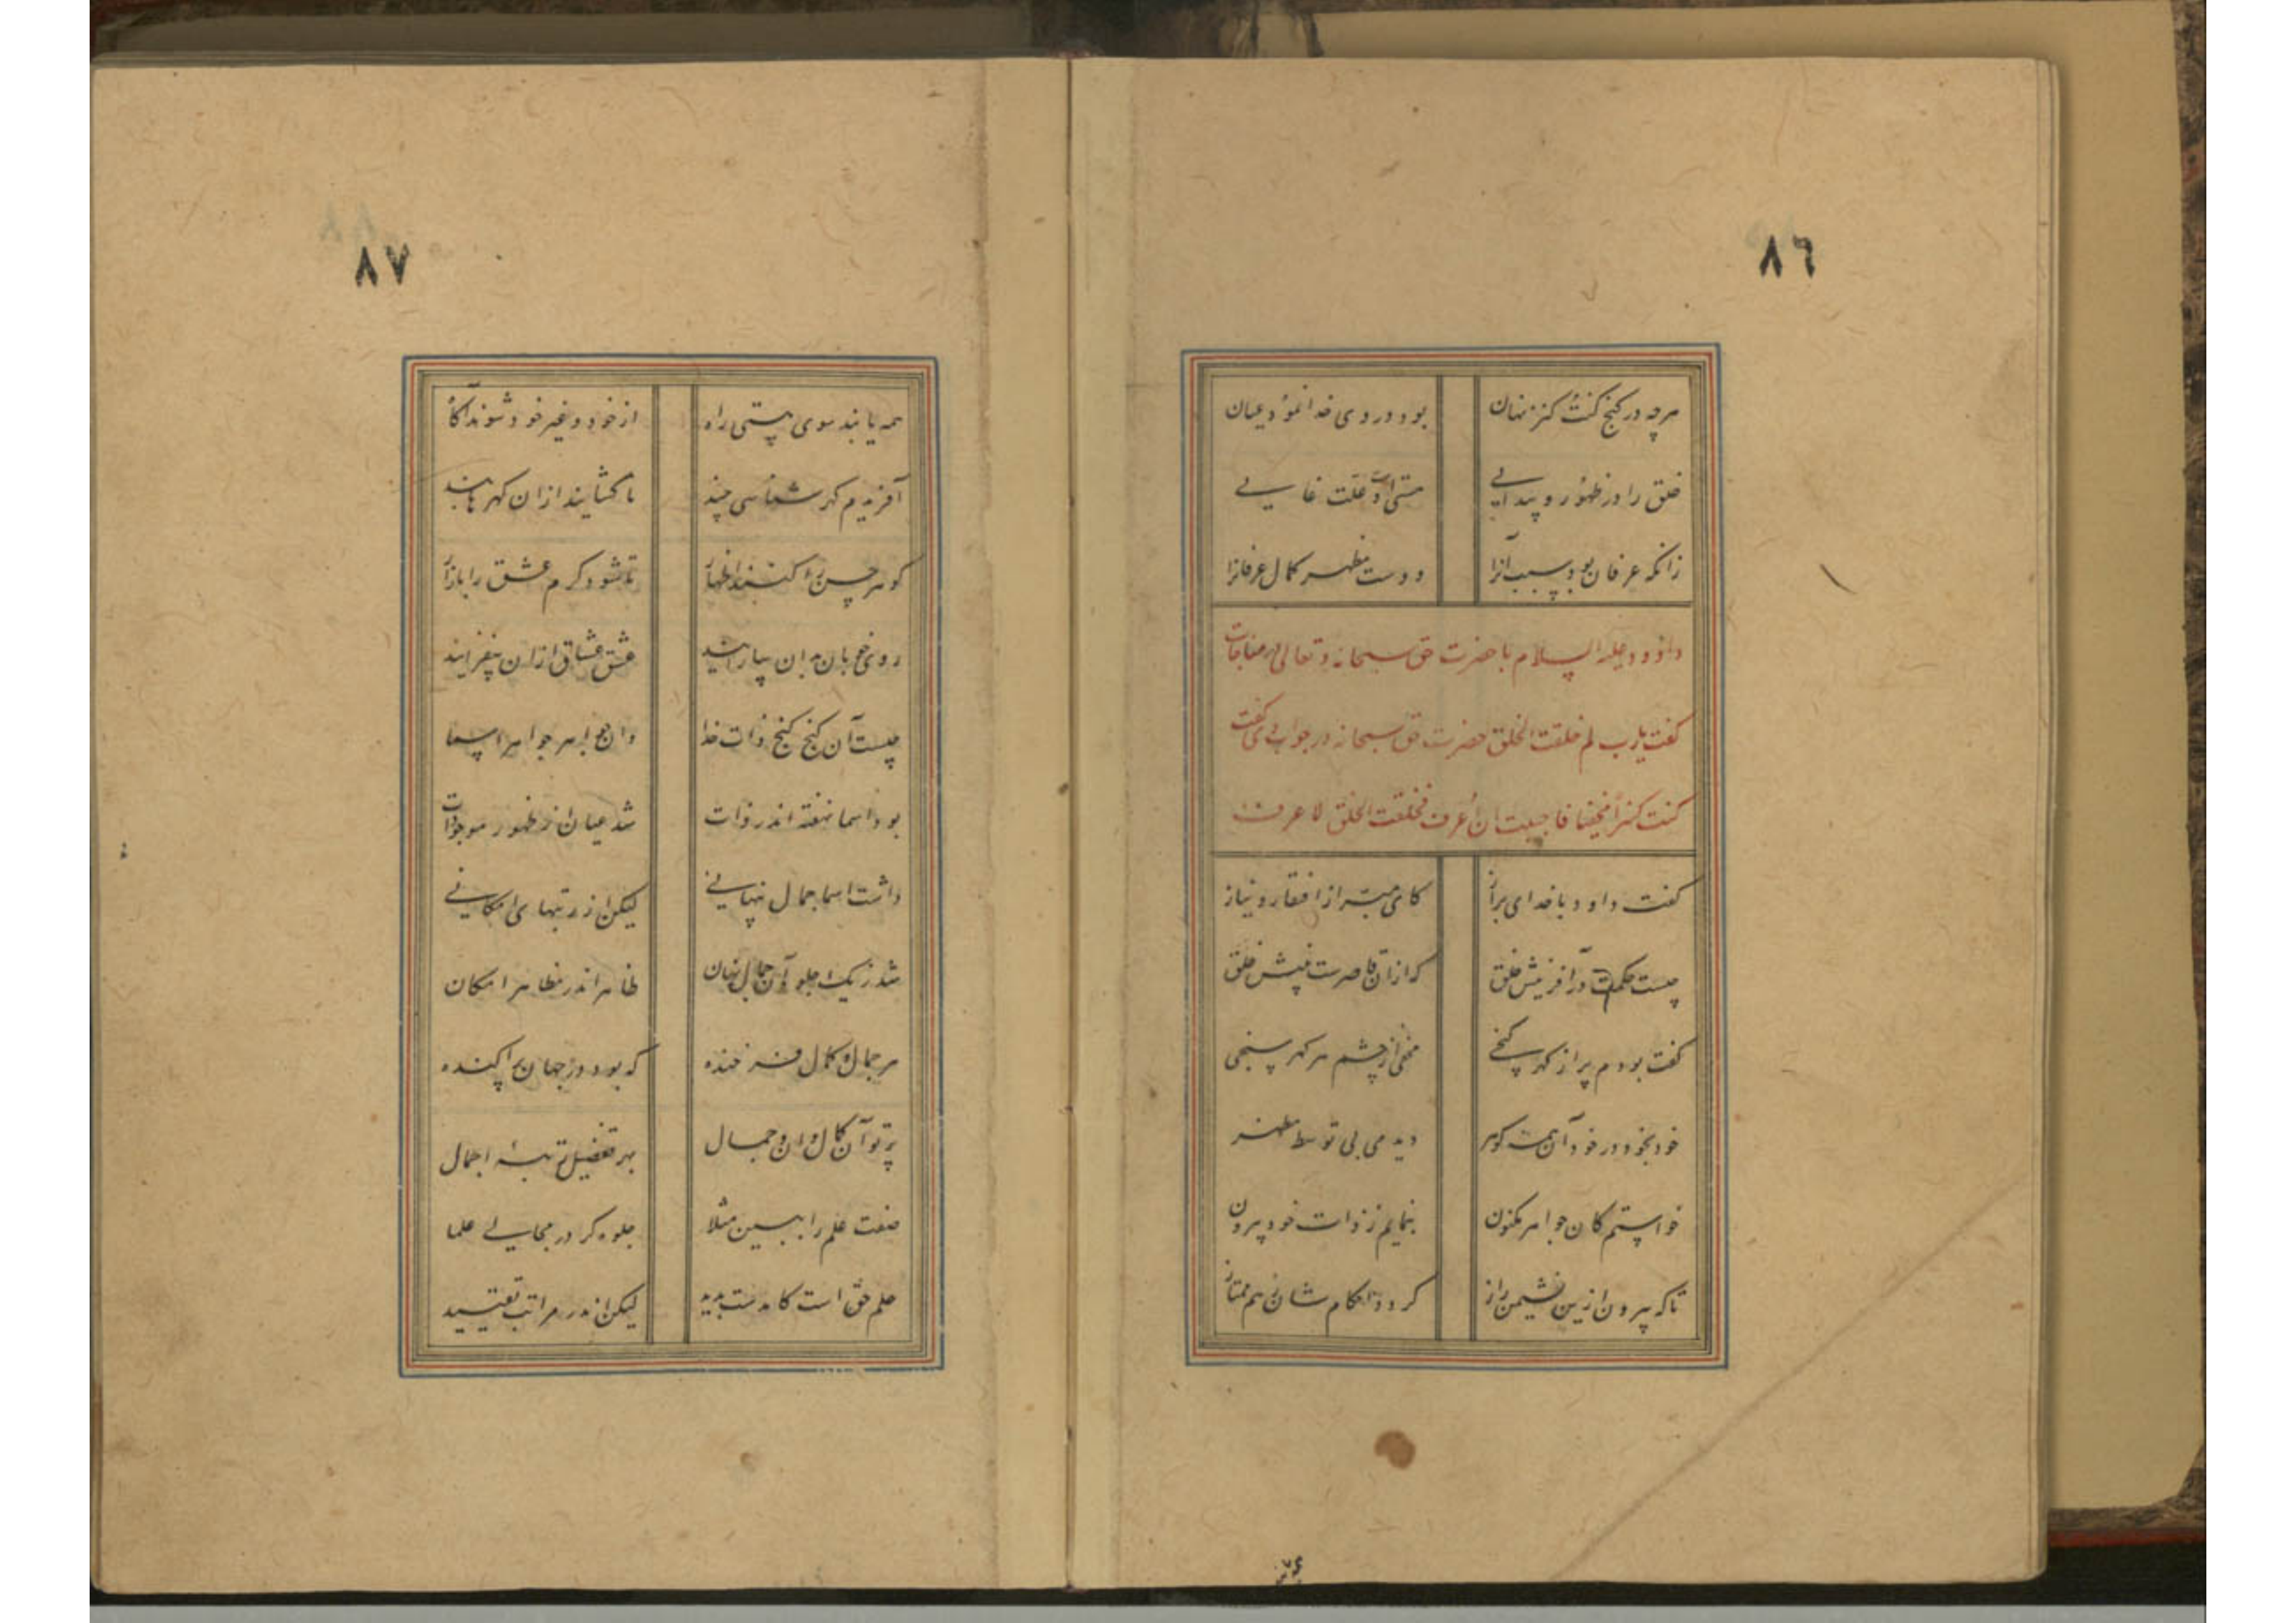 ٨٦
هرچه در کنج کنتُ کنز نهان بود در وی خدا نمود عیان
خلق را در ظهور و پیدایی هستی او علت غایی
زانکه عرفان بود سبب آنرا دوست مظهر کمال عرفانرا
داود علیه السلام با حضرت حق سبحانه و تعالی در مناجات
گفت یارب لم خلقت الخلق حضرت حق سبحانه در جواب وی گفت
کنت کنزاً مخفیا فاحببت ان اُعرف فخلقت الخلق لاعرف
گفت داود با خدای براز کای مبرا ز افتقار و نیاز
چیست حکمت در آفرینش خلق که از آن قاصرست بینش خلق
گفت بودم پر از گهر گنجی مخفی از چشم هر گهر سنجی
خود بخود در خود آن همه گوهر دیدمی بی توسط مظهر
خواستم کان جواهر مکنون بنمایم ز ذات خود بیرون
تا که بیرون ازین نشیمن راز گردد احکام شان ز هم ممتاز
٨٧
همه یابند سوی هستی راه از خود و غیر خود شوند آگاه
آفریدم گهر شناسی چند تا گشایند ازان گهرها بند
گوهر حسن را کنند اظهار تا شود گرم عشق را بازار
روی خوبان بدان بیارایند عشق عشاق ازان بیفزایند
چیست آن گنج گنج ذات خدا وان جواهر جواهر اسما
بود اسما نهفته اندر ذات شد عیان از ظهور موجودات
داشت اسما جمال پنهانی لیکن از رتبهای امکانی
شد ز یک جلوه آن جمال نهان ظاهر اندر مظاهر امکان
هر جمال و کمال فرخنده که بود در جهان پراکنده
پرتو آن کمال دان و جمال بهر تفضیل رتبهٔ اجمال
صفت علم را ببین مثلا جلوه گر در مجالی علما
علم حق است کامدست پدید لیکن اندر مراتب تقیید